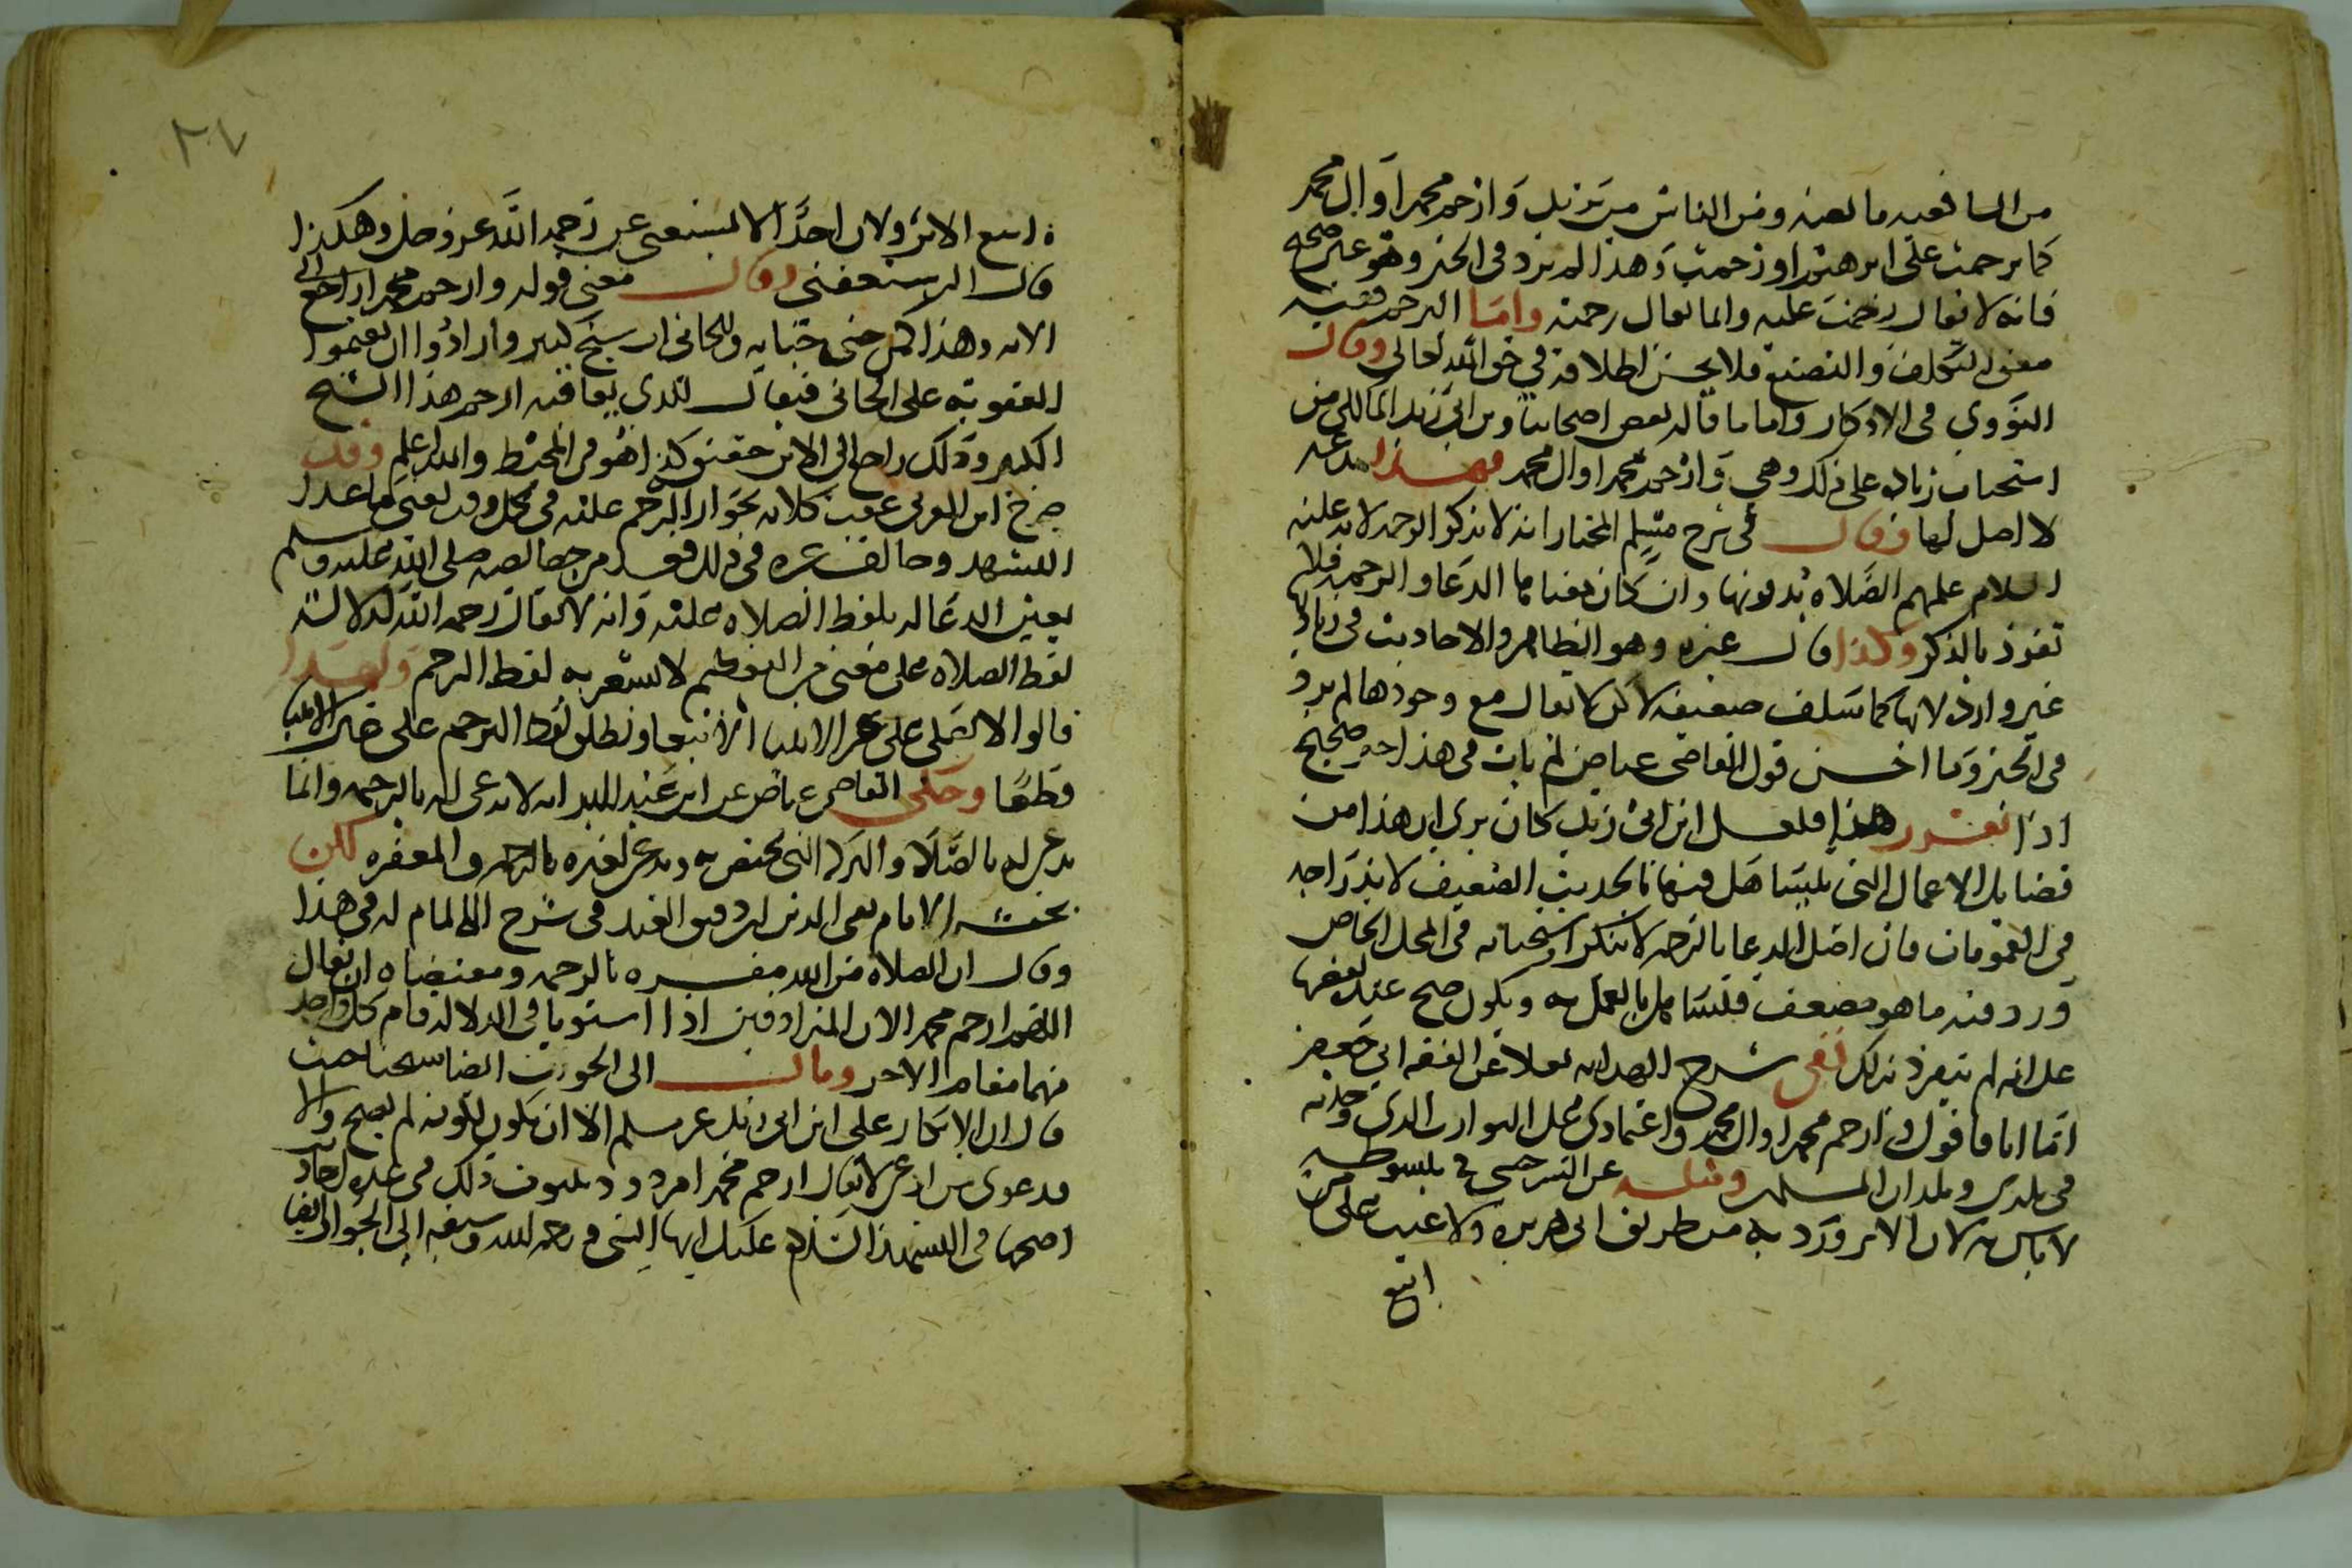 من الشافعيه ما لعنه ومن الناس من يزيد وارحم محمدا وال محمد
كما ترحمت على ابرهيم او رحمت وهذا لم يرد في الخبر وهو غير صحيح
فانه لا يقال رحمت عليه وانما يقال رحمته واما الترحم ففيه
معنى التكلف والتصنع فلا يحسن اطلاقه في حق الله تعالى وقال
النووي في الاذكار واما ما قاله بعض اصحابنا وبن ابي زيد المالكي من
استحباب زياده على ذلك وهي وارحم محمدا وال محمد فهذا بدعه
لا اصل لها وقال في شرح مسلم المختار انه لا يذكر الرحمه لانه عليه
السلام علمهم الصلاه بدونها وان كان معناها الدعا والرحمه فلا
تفرد بالذكر وكذا قال غيره وهو الظاهر والاحاديث في زيادتها
غير وارد لانها كما سلف ضعيفه لاكن لا يقال مع وجودها لم يرد
في الخبر وما احسن قول القاضي عياض لم يات في هذا خبر صحيح
اذا تقرر هذا فلعل ابن ابي زيد كان يرى ان هذا من
فضايل الاعمال التي يتساهل فيها بالحديث الضعيف لاندراجه
في العمومات فان اصل الدعا بالرحمه لا ينكر واستحبابه في المحل الخاص
ورد فيه ما هو مضعف فيتساهل بالعمل به ويكون صح عنده بعضها
على انه لم ينفرد بذلك ففي شرح الهدايه نقلا عن الفقيه ابي جعفر
اما انا فاقول وارحم محمدا وال محمد واعتمادي على التوارث الذي وجدته
في بلدي وبلدان المسلمين ومثله عن السرخسي في مبسوطه
لا باس به لان الاثر ورد به من طريق ابي هريره ولا عيب على من
اتبع
اتبع الاثر ولان احدا لا يستغني عن رحمه الله عز وجل وهكذا
قال الرستغفني وقال معنى قوله وارحم محمدا راجع الى
الامه وهذا كمن جنى جنايه وللجاني اب شيخ كبير وارادوا ان يقيموا
العقوبه على الجاني فيقال للذي يعاقبه ارحم هذا الشيخ
الكبير وذلك راجع الى الابن حقيقه كذا هو في المحيط والله اعلم وقد
صرح ابن العربي عقب كلامه بجواز الترحم عليه في كل وقت يعني ما عدا
التشهد وخالف غيره في ذلك فعد من خصايصه صلى الله عليه وسلم
تعين الدعا له بلفظ الصلاه عليه وانه لا يقال رحمه الله لدلاله
لفظ الصلاه على معنى من التعظيم لا يشعر به لفظ الترحم ولهذا
قالوا لا يصلى على غير الانبيا الا تبعا ويطلق لفظ الترحم على غير الانبيا
قطعا وحكى القاضي عياض عن ابن عبد البر انه لا يدعى له بالرحمه وانما
يدعى له بالصلاه والبركه التي تختص به ويدعى لغيره بالرحمه والمغفره لكن
بحث الامام تقي الدين ابن دقيق العيد في شرح الالمام له في هذا
وقال ان الصلاه من الله مفسره بالرحمه ومقتضاه ان يقال
اللهم ارحم محمدا لان المترادفين اذا استويا في الدلاله قام كل واحد
منهما مقام الاخر ومال الى الجواز ايضا شيخنا حيث
قال ان الانكار على ابن ابي زيد غير مسلم الا ان يكون لكونه لم يصح والا
فدعوى من ادعى لا يقال ارحم محمدا مردود بثبوت ذلك في عده احاديث
اصحها في التشهد السلام عليك ايها النبي ورحمه الله وسبقه الى الجواز ايضا